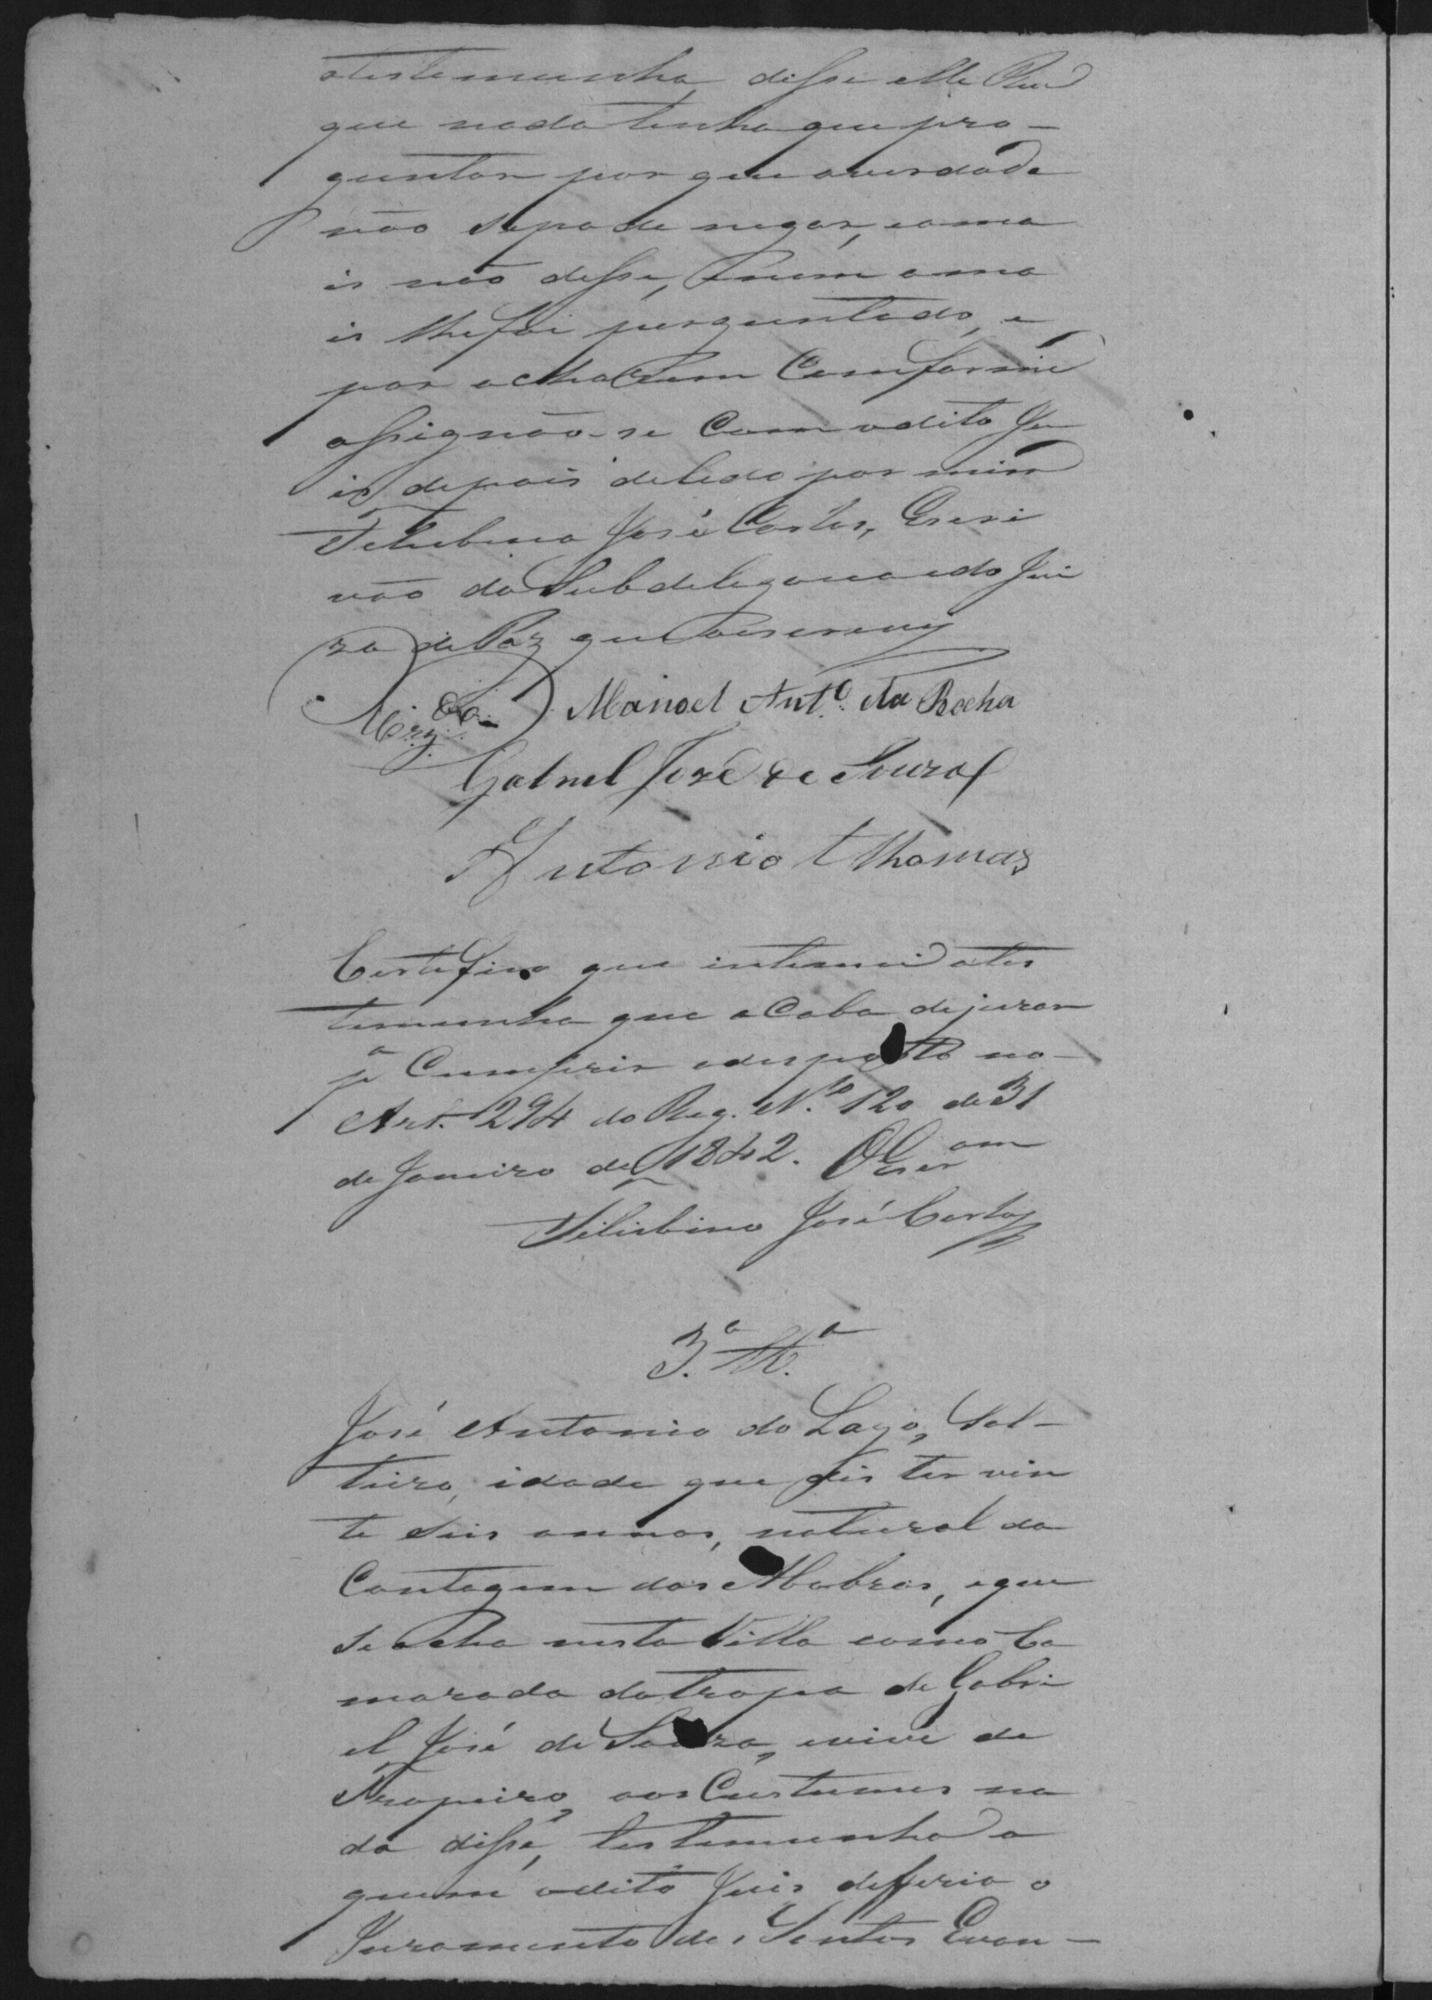 atestemunha, disse elle Reu
que nada tinha que pro-
guntar por que averdade
não sepode negar, eama
is não disse, nem ama
is lhefoi perguntado, e
por acharem Comforme
assignão-se Com odito Ju
is, depois delido por mim
Felisbino José Cortes, Escri
vão da Subdelegacia edo Jui
zo de Paz que oescrevy
Manoel Ant.º da Rocha
Gabriel José de Souza
Antonio Thomas
Certifico que intemei ates
temunha que aCaba dejurar
pª Cumprir odesposto no
Art. 294 do Reg. N.º 120 de 31
de Janeiro de 1842. O Escr.am
Felisbino José Cortes
3.ª tt.ª
José Antonio do Lago, Sol-
teiro, idade que dis ter vin
te seis annos, natural da
Contagem das Abobras, eque
seacha nesta Villa como Ca
marada datropa de Gabri
el José de Souza, evive de
Tropeiro, aos Custumes na
da disse, testemunha a
quem odito Juis defferio o
Juramento dos Santos Evan-